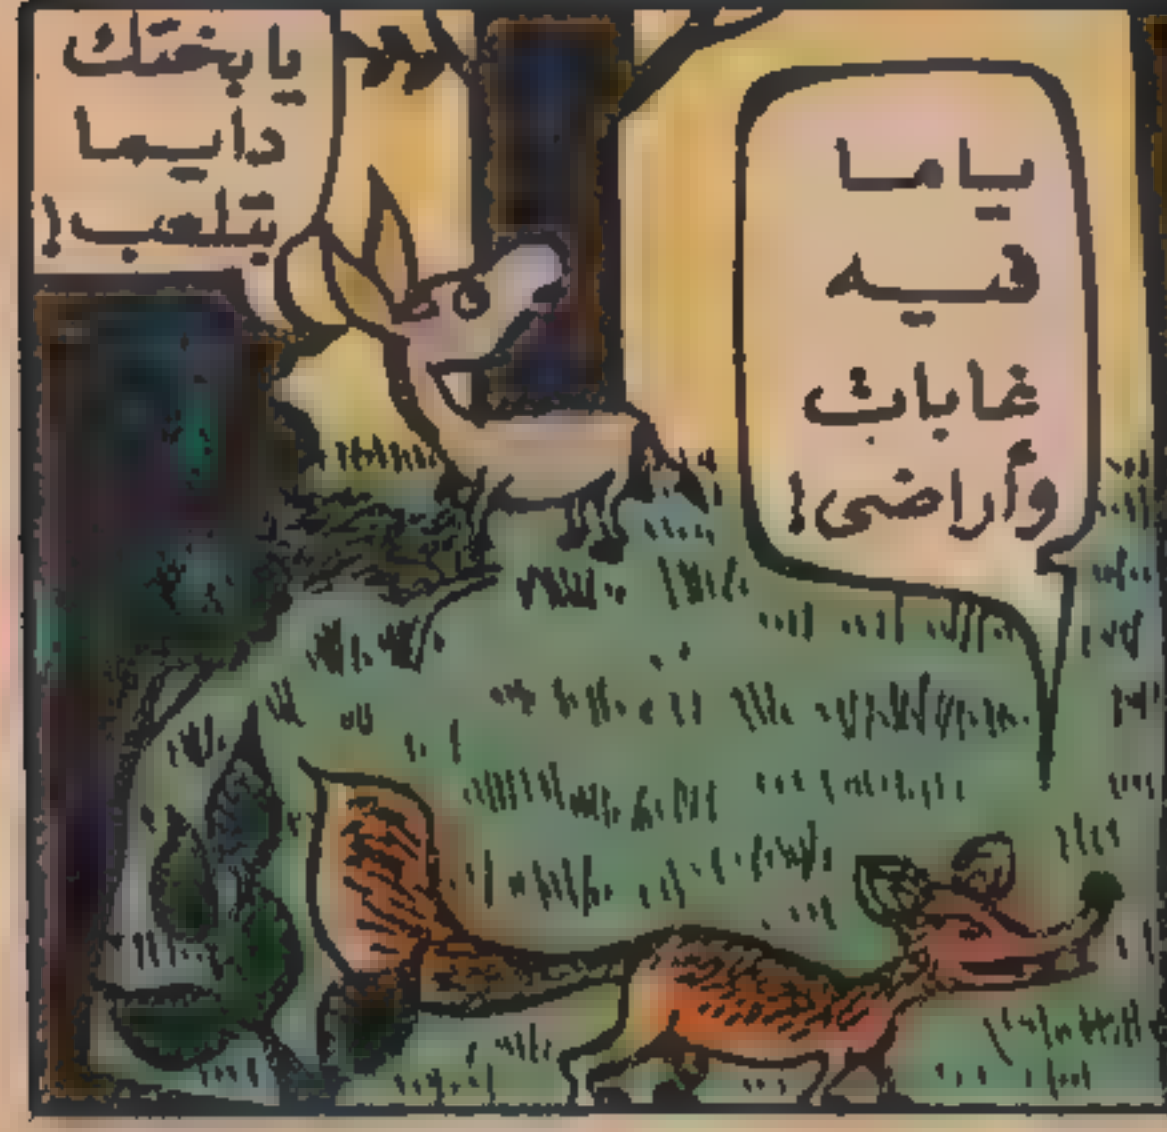 ياما
فيه
غابات
وأراضى!
يا بختك
دايما
بتلعب!